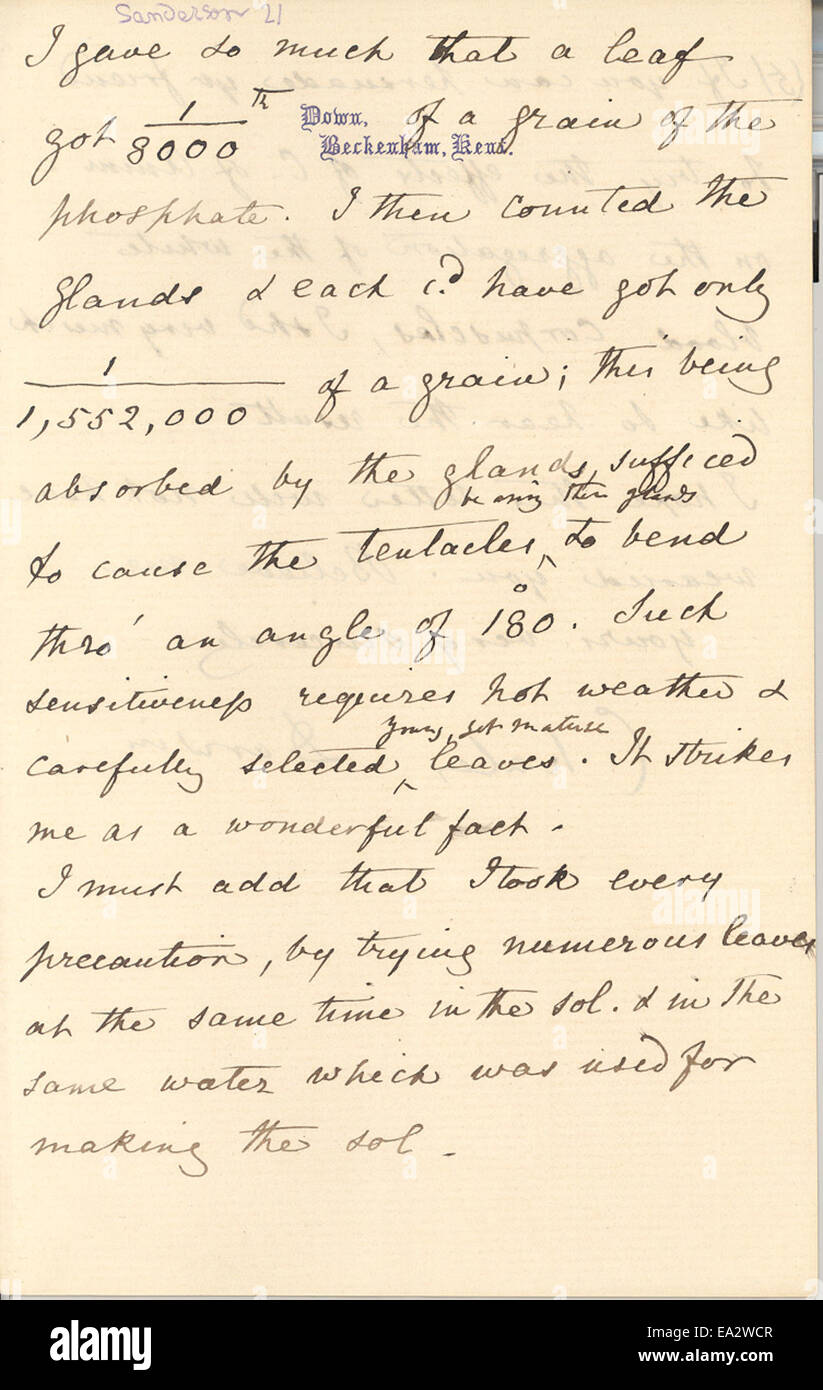 Sanderson 21
I gave so much that a leaf
got 1/8000th of a grain of the
Down,
Beckenham, Kent.
phosphate. I then counted the
glands & each cd. have got only
1/1,552,000 of a grain; this being
absorbed by the glands, sufficed
bearing these glands
to cause the tentacles ‸ to bend
thro' an angle of 180°. Such
sensitiveness requires hot weather &
young, yet mature
carefully selected ‸ leaves. It strikes
me as a wonderful fact.
I must add that I took every
precaution, by trying numerous leaves
at the same time in the sol. & in the
same water which was used for
making the sol.
alamy
alamy stock photo
EA2WCR
www.alamy.com